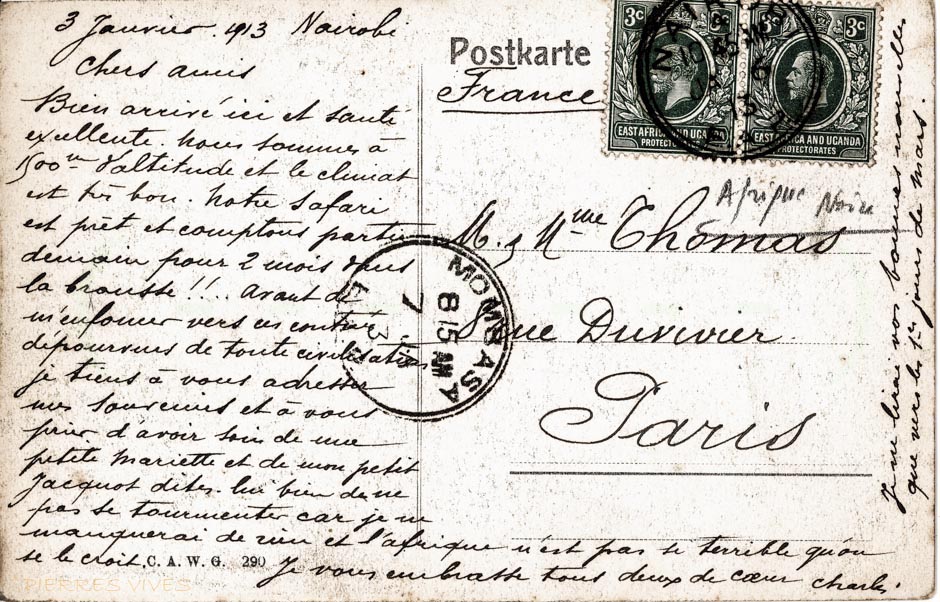 3 Janvier. 1913 Nairobi
Chers amis
Bien arrivé ici et santé
excellente. Nous sommes à
1500m d'altitude et le climat
est très bon. Notre Safari
est prêt et comptons partir
demain pour 2 mois dans
la brousse!!... Avant de
m'enfoncer vers ces contrées
dépourvues de toute civilisation
je tiens à vous adresser
mes souvenirs et à vous
prier d'avoir soin de ma
petite Mariette et de mon petit
Jacquot dites-lui bien de ne
pas se tourmenter car je ne
manquerai de rien et l'afrique n'est pas si terrible qu'on
se le croit. Je vous embrasse tous deux de cœur Charles
Je ne lirai vos bonnes nouvelles
que vers les 1er jours de mars.
Postkarte
France
M. & Mme Thomas
rue Duvivier
Paris
Afrique Noire
3c 3c
EAST AFRICA AND UGANDA
PROTECTORATES
EAST AFRICA AND UGANDA
PROTECTORATES
MOMBASA
8 15 AM
7
13
C. A. W. G. 290
PIERRES VIVES